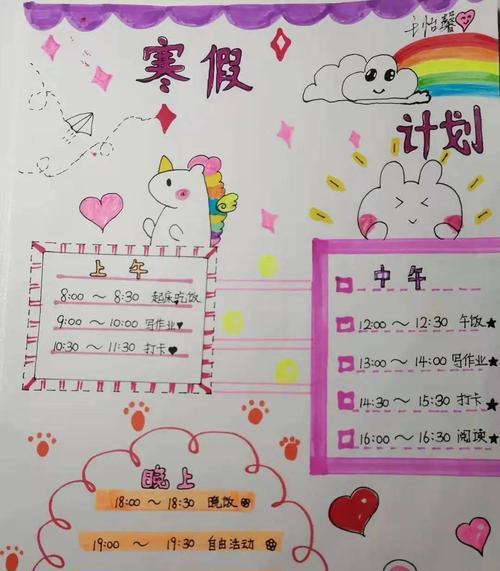 怡馨
寒假
计划
上午
8:00～8:30 起床吃饭
9:00～10:00 写作业
10:30～11:30 打卡
中午
12:00～12:30 午饭
13:00～14:00 写作业
14:30～15:30 打卡
16:00～16:30 阅读
晚上
18:00～18:30 晚饭
19:00～19:30 自由活动